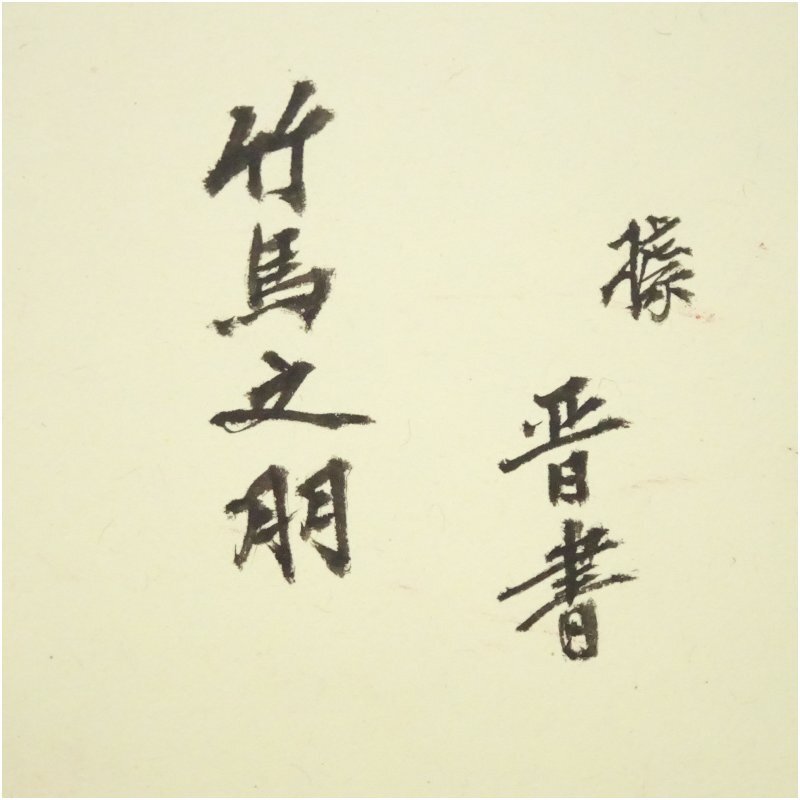 據
晋書
竹馬之朋